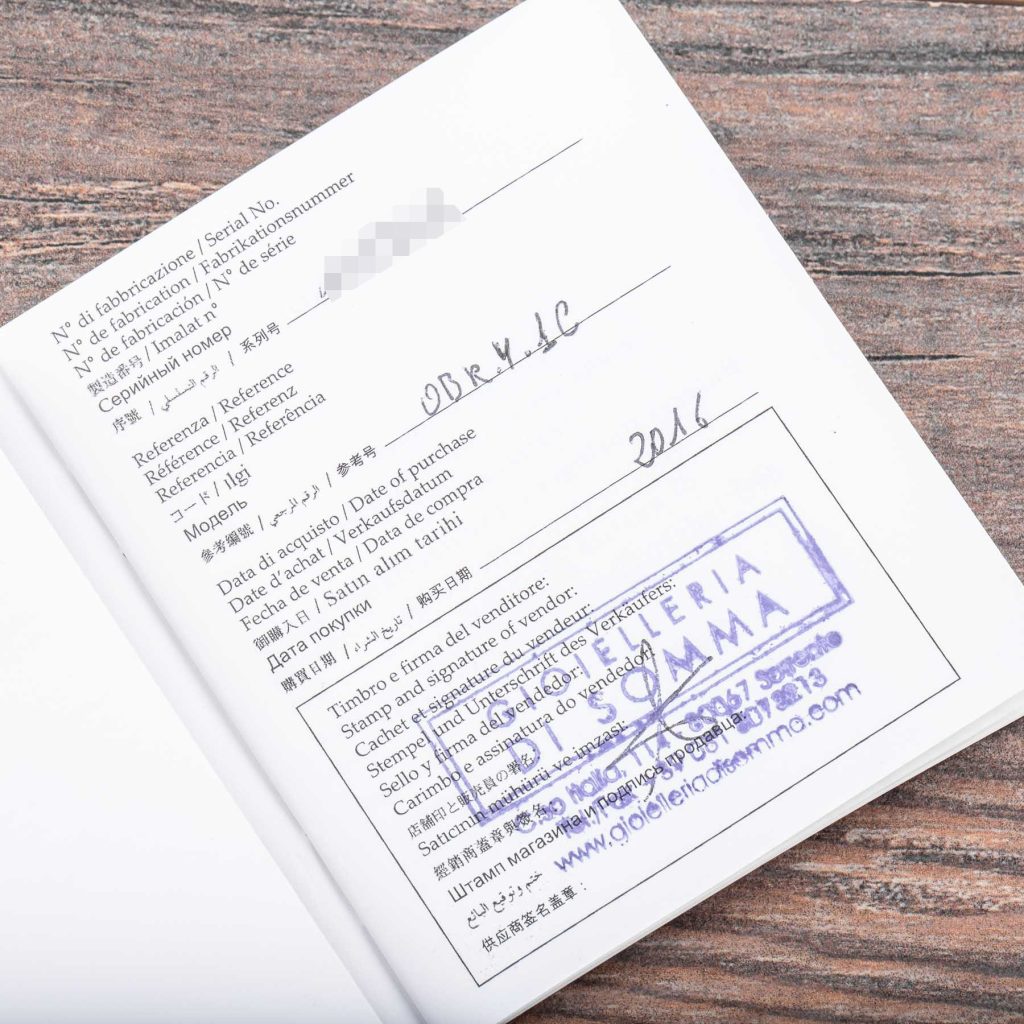 N° di fabbricazione / Serial No.
N° de fabrication / Fabrikationsnummer
N° de fabricación / N° de série
製造番号 / Imalat n°
Серийный номер
序號 / الرقم التسلسلي / 系列号
Referenza / Reference
Référence / Referenz
Referencia / Referência
コード / Ilgi
Модель
參考編號 / الرقم المرجعي / 参考号
OBK.Y.1C
Data di acquisto / Date of purchase
Date d'achat / Verkaufsdatum
Fecha de venta / Data de compra
御購入日 / Satın alım tarihi
Дата покупки
購買日期 / تاريخ الشراء / 购买日期
2016
Timbro e firma del venditore:
Stamp and signature of vendor:
Cachet et signature du vendeur:
Stempel und Unterschrift des Verkäufers:
Sello y firma del vendedor:
Carimbo e assinatura do vendedor:
店舗印と販売員の署名
Satıcının mühürü ve imzası:
經銷商蓋章與簽名：
Штамп магазина и подпись продавца:
ختم وتوقيع البائع
供应商签名盖章：
GIOIELLERIA
DI SOMMA
C.so Italia, 80067 Sorrento
www.gioielleriadisomma.com